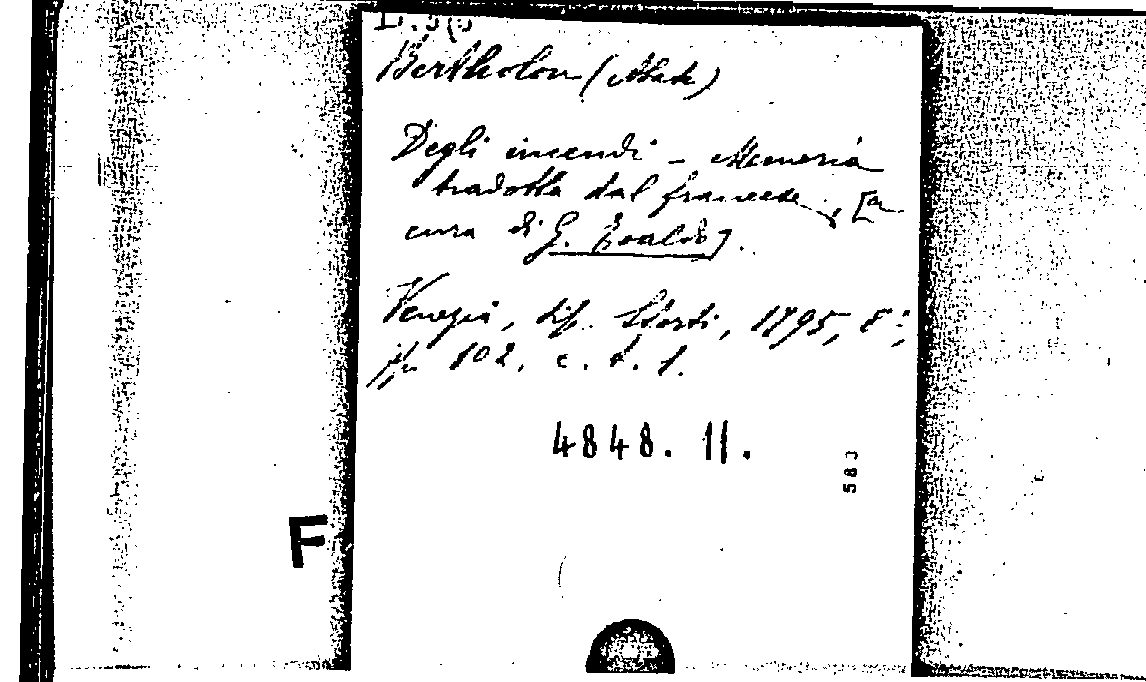 Bertholon (Abate)
Degli incendi - Memoria
tradotta dal francese, [a
cura di G. Toaldo].
Venezia, tip. Storti, 1795, 8°,
pp. 102, c. t. 1.
4848. 11.
583
F